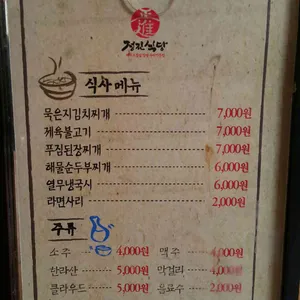 正進
정진식당
식사메뉴
묵은지김치찌개 7,000원
제육불고기 7,000원
푸짐된장찌개 7,000원
해물순두부찌개 6,000원
열무냉국시 6,000원
라면사리 2,000원
주류
소주 4,000원 맥주 4,000원
한라산 5,000원 막걸리 4,000원
클라우드 5,000원 음료수 2,000원